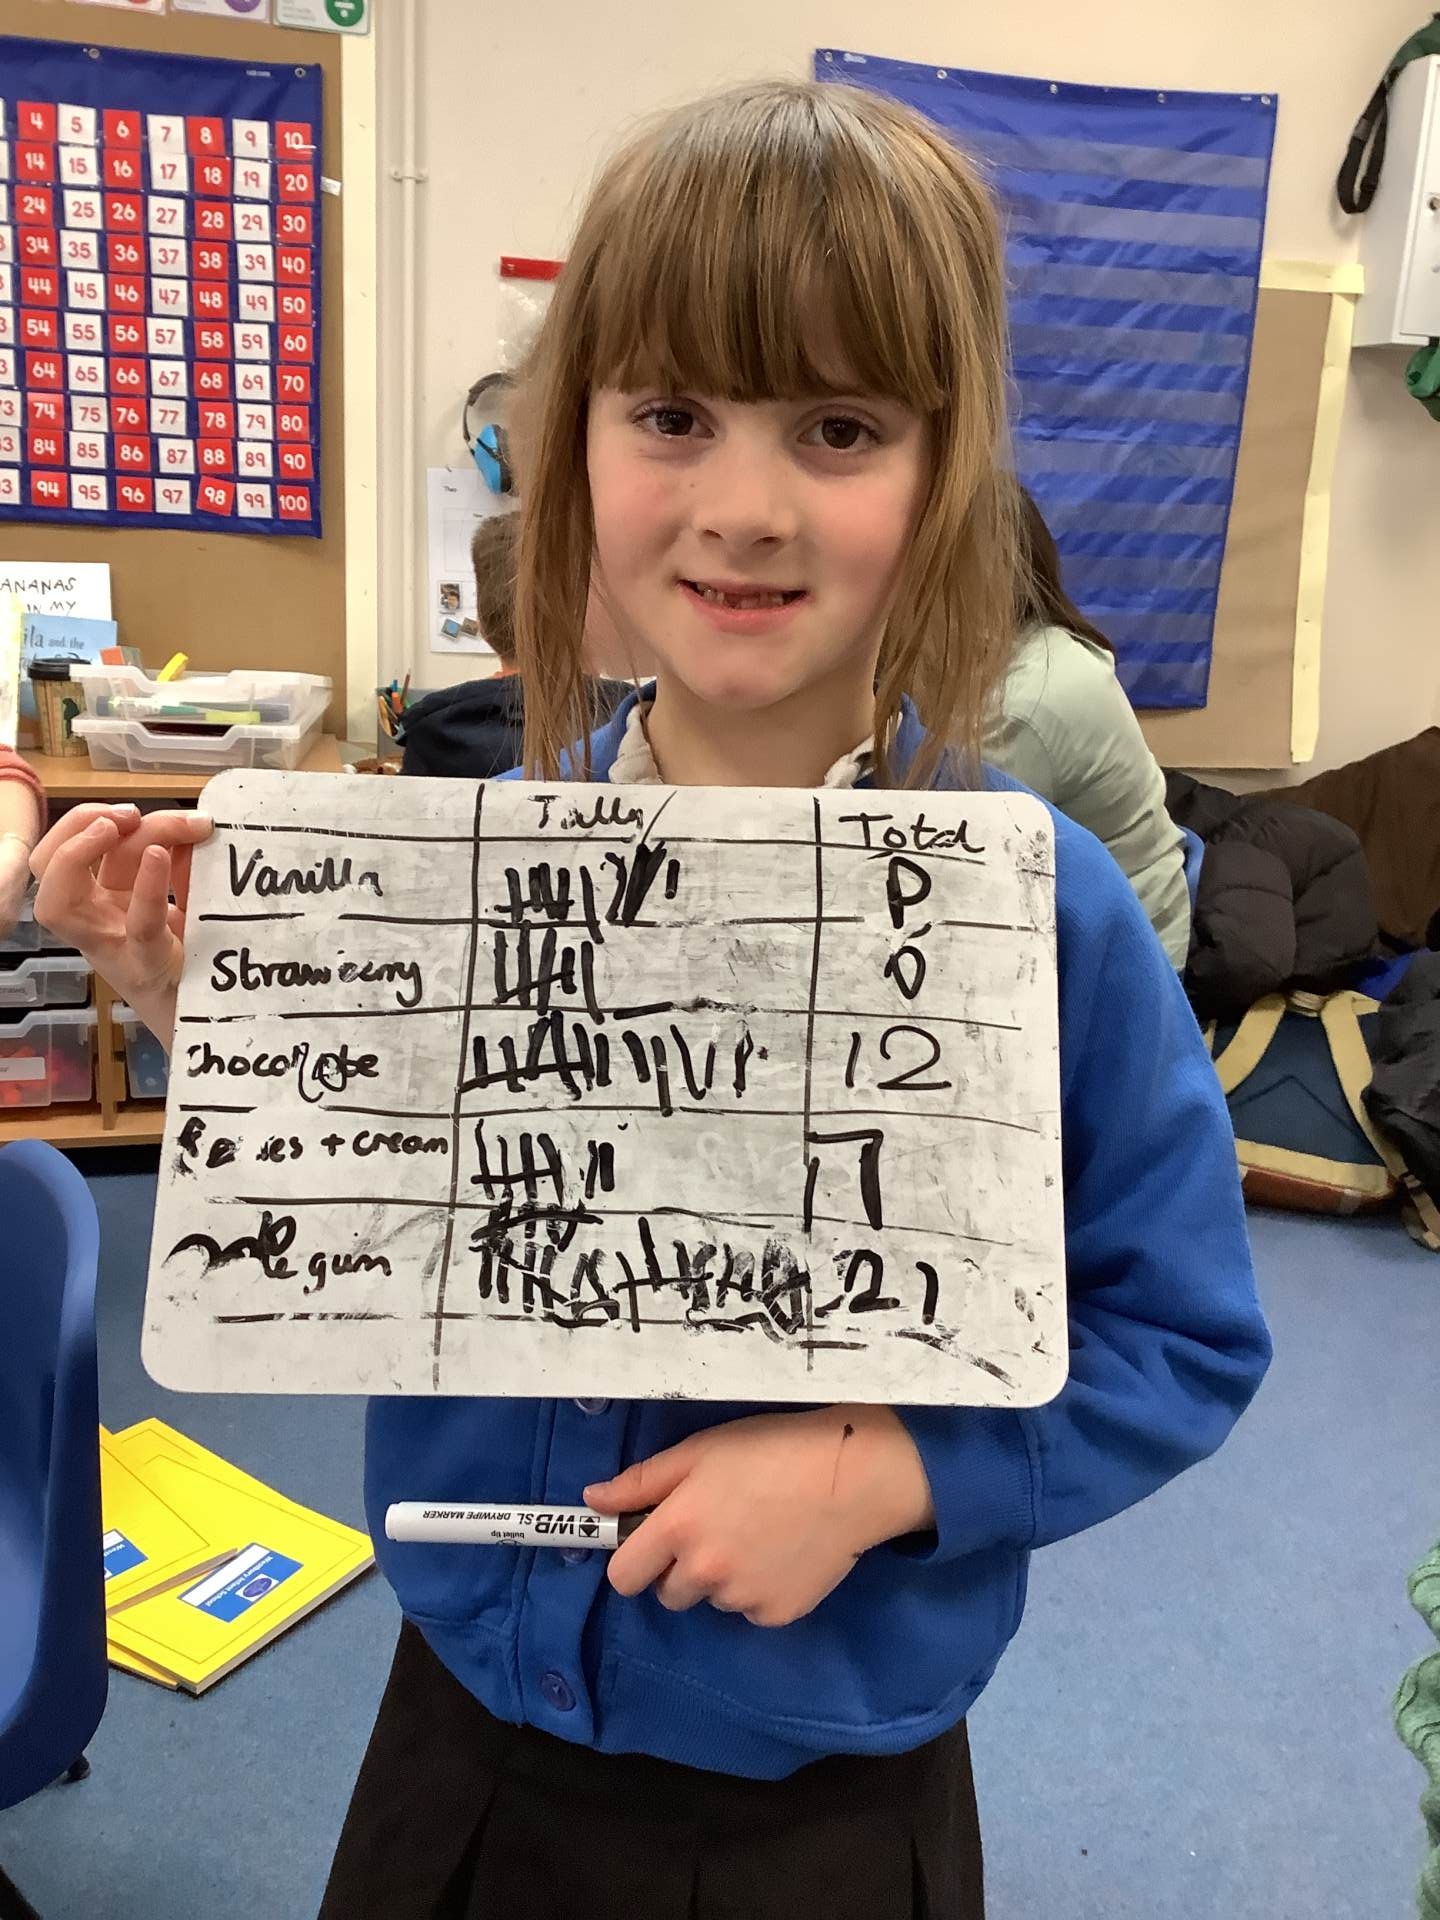 4 5 6 7 8 9 10
14 15 16 17 18 19 20
24 25 26 27 28 29 30
34 35 36 37 38 39 40
44 45 46 47 48 49 50
54 55 56 57 58 59 60
64 65 66 67 68 69 70
74 75 76 77 78 79 80
84 85 86 87 88 89 90
94 95 96 97 98 99 100
ANANAS
IN MY
and the
Tally Total
Vanilla
Strawberry
Chocolate 12
+ cream 7
gum 21
WB SL DRYWIPE MARKER
bullet tip
Westbury Infant School